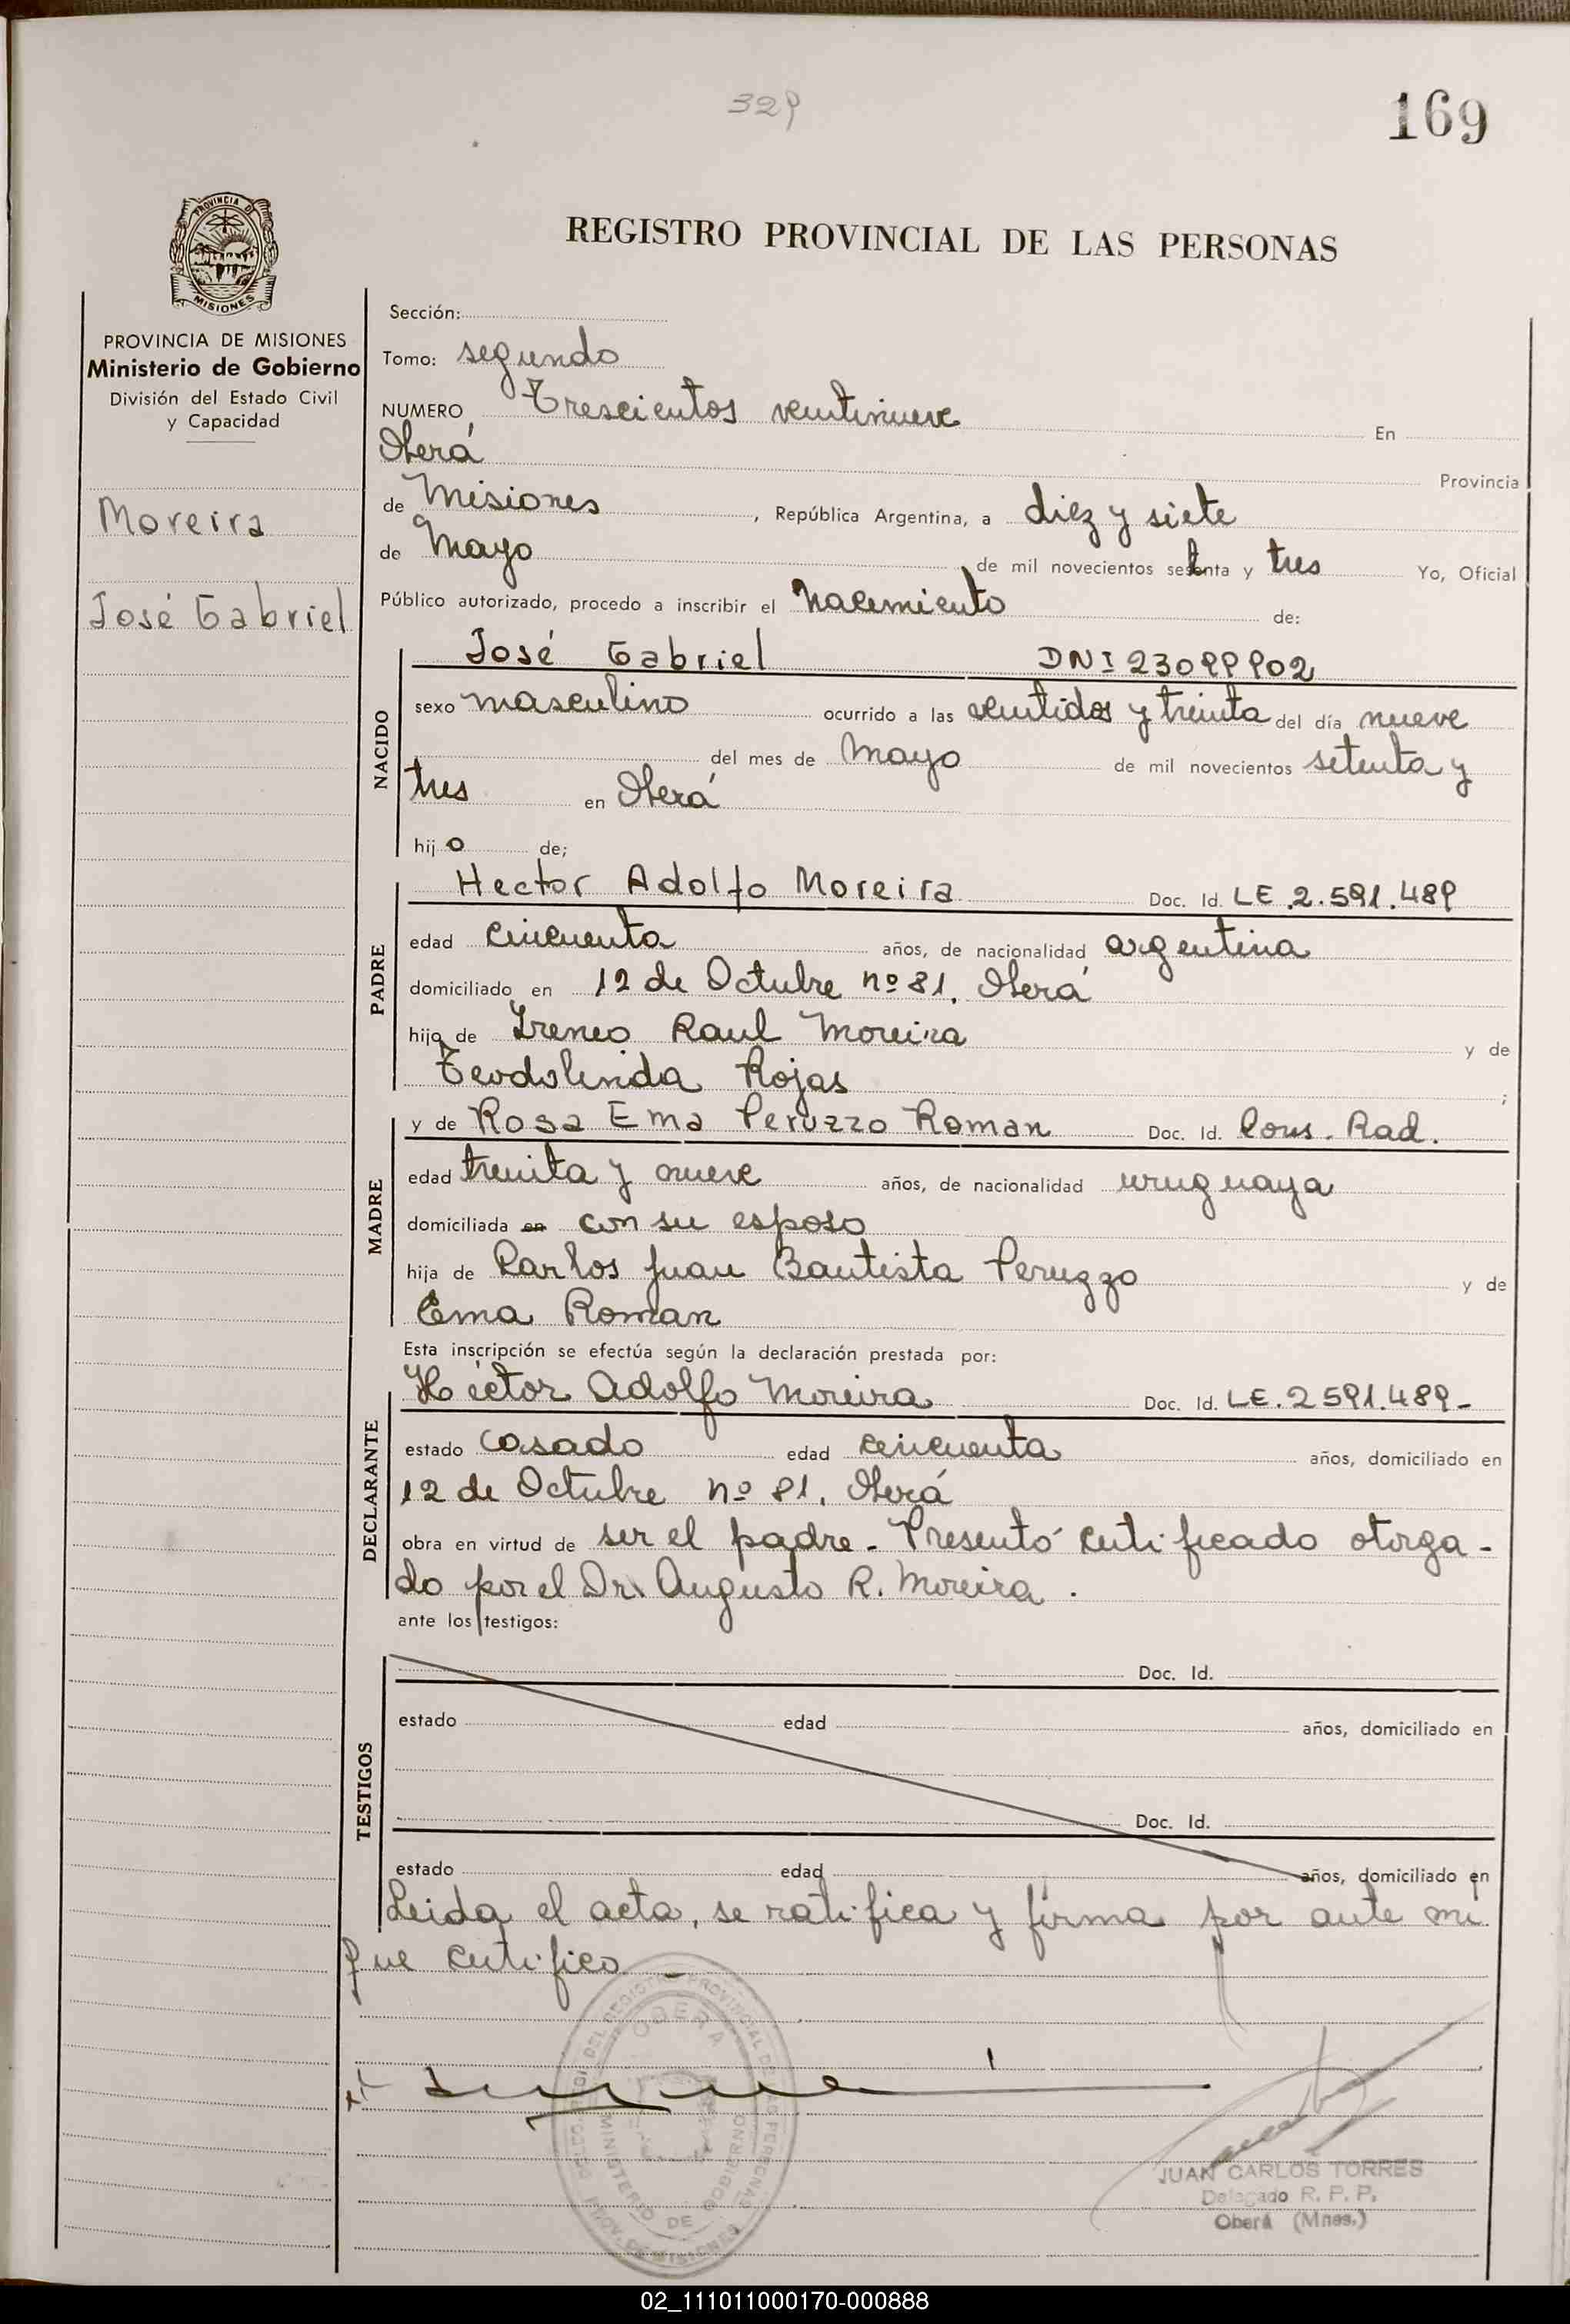 329
169
REGISTRO PROVINCIAL DE LAS PERSONAS
PROVINCIA DE MISIONES
PROVINCIA DE MISIONES
Ministerio de Gobierno
División del Estado Civil
y Capacidad
Moreira
José Gabriel
Sección:
Tomo: segundo
NUMERO Trescientos veintinueve En
Oberá Provincia
de Misiones, República Argentina, a diez y siete
de Mayo de mil novecientos setenta y tres Yo, Oficial
Público autorizado, procedo a inscribir el Nacimiento de:
NACIDO
José Gabriel DNI 23099902
sexo masculino ocurrido a las veintidos y treinta del día nueve
del mes de Mayo de mil novecientos setenta y
tres en Oberá
hijo de;
PADRE
Hector Adolfo Moreira Doc. Id. LE.2.591.489
edad cincuenta años, de nacionalidad argentina
domiciliado en 12 de Octubre nº 81. Oberá
hijo de Ireneo Raul Moreira y de
Teodolinda Rojas ;
MADRE
y de Rosa Ema Peruzzo Roman Doc. Id. Cons. Rad.
edad treinta y nueve años, de nacionalidad uruguaya
domiciliada en con su esposo
hija de Carlos Juan Bautista Peruzzo y de
Ema Roman
Esta inscripción se efectúa según la declaración prestada por:
DECLARANTE
Héctor Adolfo Moreira Doc. Id. LE.2591.489-
estado casado edad cincuenta años, domiciliado en
12 de Octubre nº 81. Oberá
obra en virtud de ser el padre - Presentó certificado otorga-
do por el Dr. Augusto R. Moreira.
ante los testigos:
TESTIGOS
Doc. Id.
estado edad años, domiciliado en
Doc. Id.
estado edad años, domiciliado en
Leida el acta, se ratifica y firma por ante mi
que certifico -
OBERA
DEL REGISTRO PROVINCIAL DE LAS PERSONAS
MINISTERIO DE GOBIERNO
PROV. DE MISIONES
JUAN CARLOS TORRES
Delegado R. P. P.
Oberá (Mnes.)
02_111011000170-000888